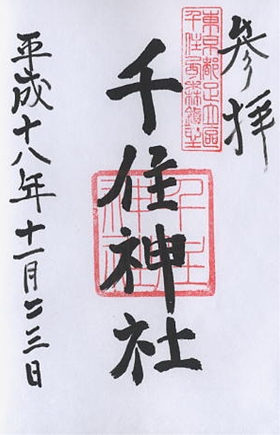 参拝
東京都足立區
千住西森鎮座
千住神社
千住
神社
平成十八年十一月二三日